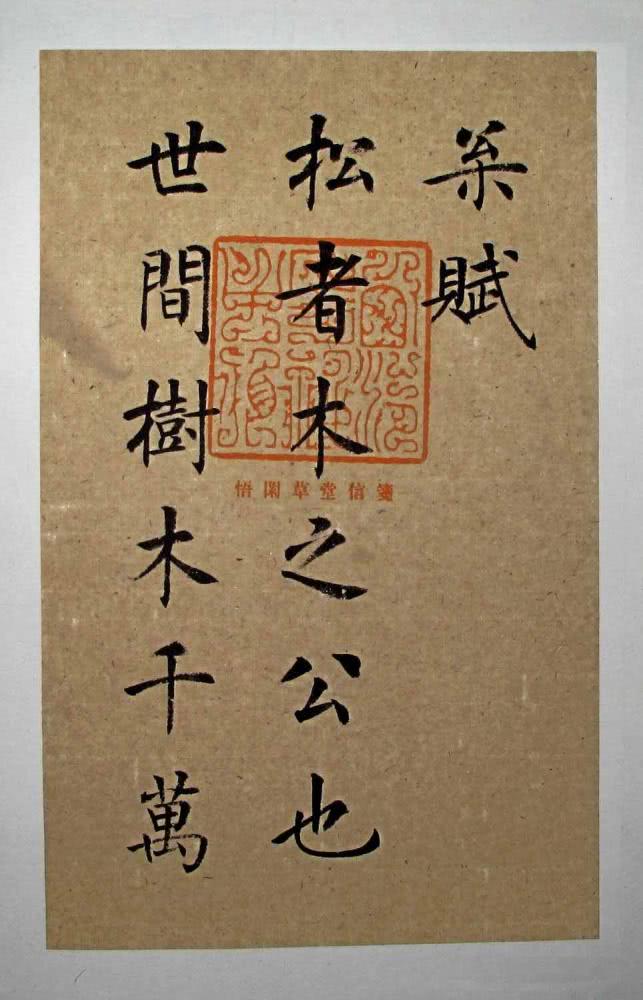 枀賦
松者木之公也
世間樹木千萬
悟閑草堂信箋